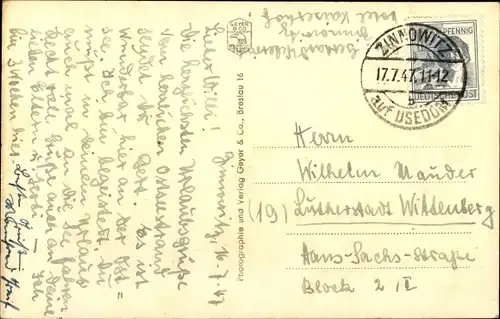 Zinnowitz, 16.7.47
Lieber Willi!
Die herzlichsten Urlaubsgrüße
vom herrlichen Ostseestrand
sendet dir Gert. Es ist
wunderbar hier an der Ost=
see. Ich bin begeistert. Du
mußt in deinem Urlaub
auch mal an die See fahren
Recht viele Grüße auch an Deine
lieben Eltern
die 3 Wochen hier.
GEYER & CO
BRESLAU
Photographie und Verlag Geyer & Co., Breslau 16
Zinnowitz
Hotel Kaiserhof
ZINNOWITZ
17.7.47.11-12
b
auf USEDOM
PFENNIG
DEUTSCHE POST
Herrn
Wilhelm Mauder
(19) Lutherstadt Wittenberg
Hans-Sachs-Straße
Block 2 II